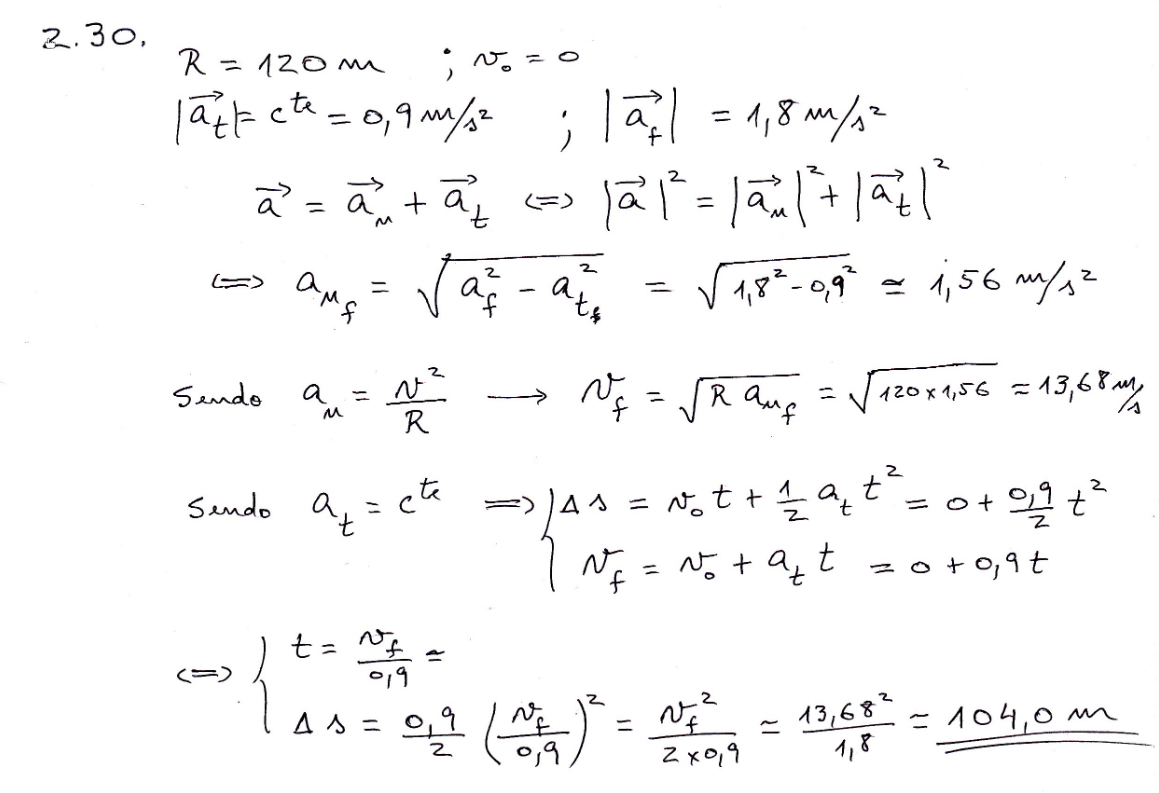 2.30.
R = 120 m ; v₀ = 0
|a⃗ₜ| = cᵗᵉ = 0,9 m/s² ; |a⃗_f| = 1,8 m/s²
a⃗ = a⃗ₙ + a⃗ₜ <=> |a⃗|² = |a⃗ₙ|² + |a⃗ₜ|²
<=> a_{n_f} = √(a_f² - a_{t_f}²) = √(1,8² - 0,9²) ≃ 1,56 m/s²
Sendo aₙ = v²/R → v_f = √(R a_{n_f}) = √(120 × 1,56) ≃ 13,68 m/s
Sendo aₜ = cᵗᵉ => { Δs = v₀t + 1/2 aₜt² = 0 + 0,9/2 t²
v_f = v₀ + aₜt = 0 + 0,9t
<=> { t = v_f/0,9 ≃
Δs = 0,9/2 (v_f/0,9)² = v_f²/(2×0,9) ≃ 13,68²/1,8 ≃ 104,0 m